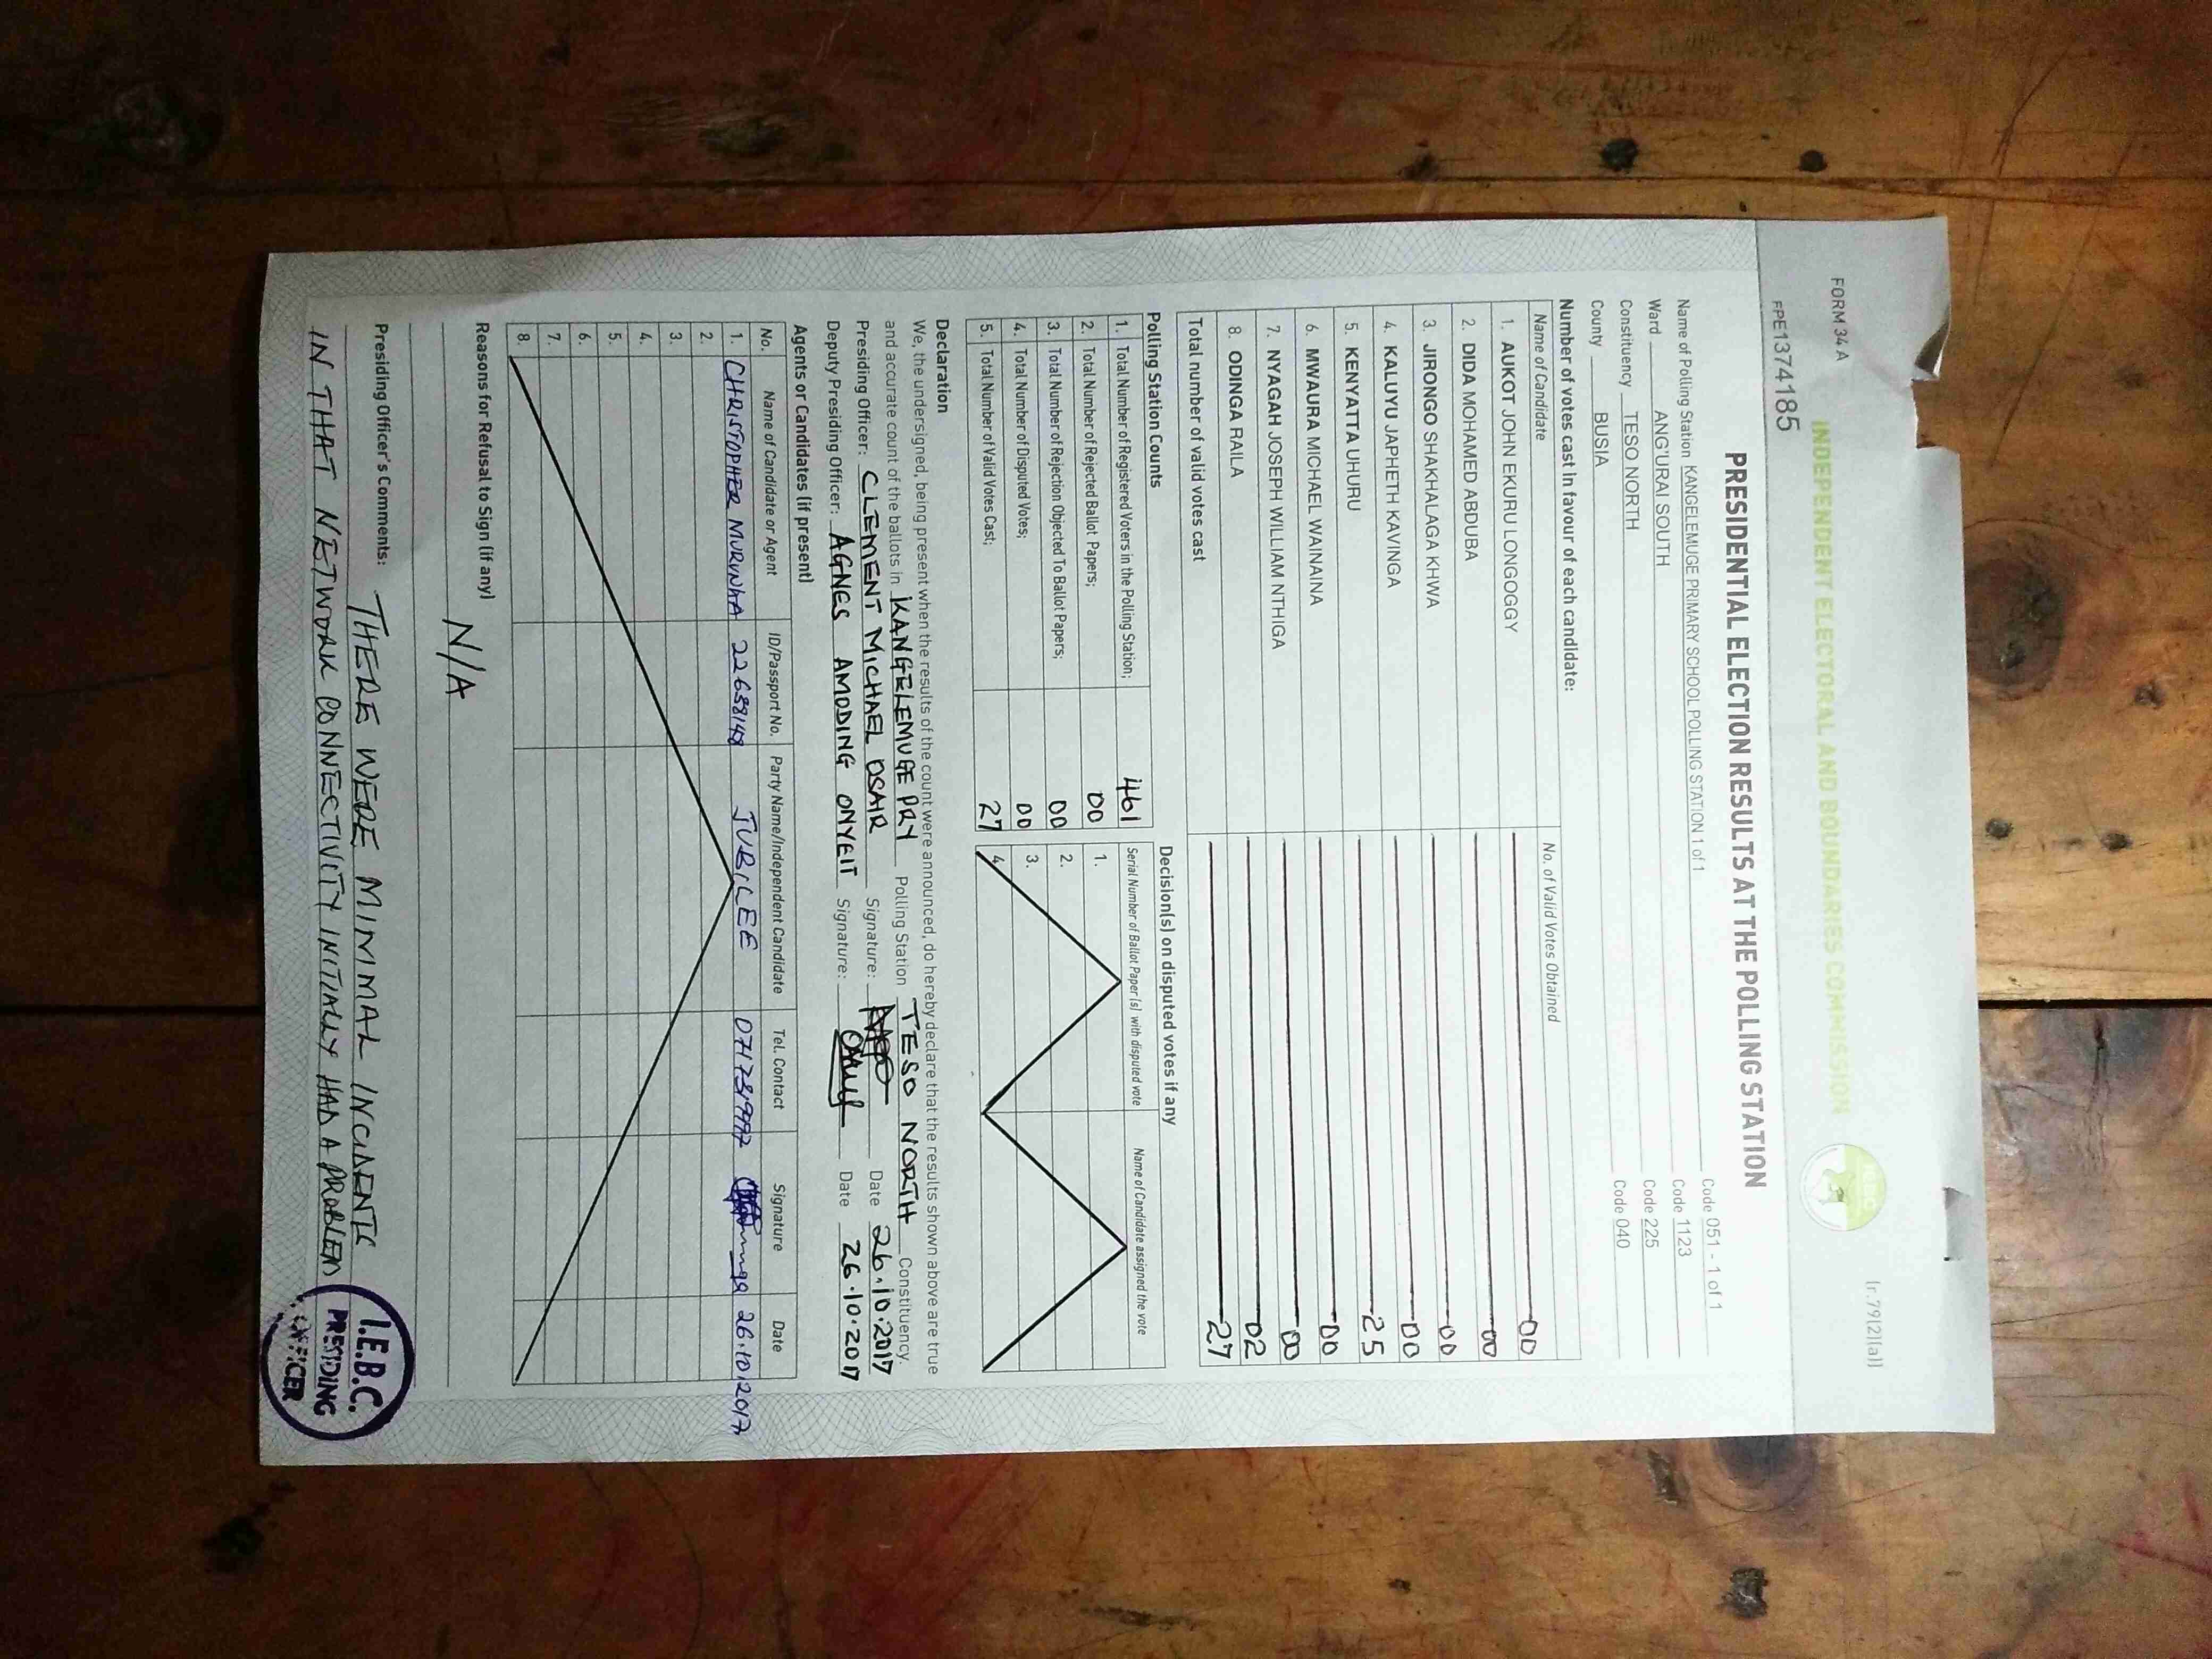 FORM 34 A
(r.79(2)(a))
INDEPENDENT ELECTORAL AND BOUNDARIES COMMISSION
PE1374185
PRESIDENTIAL ELECTION RESULTS AT THE POLLING STATION
Name of Polling Station KANGELEMUGE PRIMARY SCHOOL POLLING STATION 1 of 1 Code 051 - 1 of 1
Ward ANG'URAI SOUTH Code 1123
Constituency TESO NORTH Code 225
County BUSIA Code 040
Number of votes cast in favour of each candidate:
Name of Candidate No. of Valid Votes Obtained
1. AUKOT JOHN EKURU LONGOGGY 00
2. DIDA MOHAMED ABDUBA 00
3. JIRONGO SHAKHALAGA KHWA 00
4. KALUYU JAPHETH KAVINGA 00
5. KENYATTA UHURU 25
6. MWAURA MICHAEL WAINAINA 00
7. NYAGAH JOSEPH WILLIAM NTHIGA 00
8. ODINGA RAILA 02
Total number of valid votes cast 27
Polling Station Counts
1. Total Number of Registered Voters in the Polling Station; 461
2. Total Number of Rejected Ballot Papers; 00
3. Total Number of Rejection Objected To Ballot Papers; 00
4. Total Number of Disputed Votes; 00
5. Total Number of Valid Votes Cast; 27
Decision(s) on disputed votes if any
Serial Number of Ballot Paper (s) with disputed vote Name of Candidate assigned the vote
1.
2.
3.
4.
Declaration
We, the undersigned, being present when the results of the count were announced, do hereby declare that the results shown above are true
and accurate count of the ballots in KANGELEMUGE PRY Polling Station TESO NORTH Constituency.
Presiding Officer: CLEMENT MICHAEL OSAIR Signature: Date 26.10.2017
Deputy Presiding Officer: AGNES AMODING ONYEIT Signature: Date 26.10.2017
Agents or Candidates (if present)
No. Name of Candidate or Agent ID/Passport No. Party Name/Independent Candidate Tel. Contact Signature Date
1. CHRISTOPHER JUBILEE 26.10.2017
2.
3.
4.
5.
6.
7.
8.
Reasons for Refusal to Sign (if any)
N/A
Presiding Officer's Comments: THERE WERE MINIMAL INCIDENTS
IN THAT NETWORK CONNECTIVITY INITIALLY HAD A PROBLEM
I.E.B.C.
PRESIDING
OFFICER